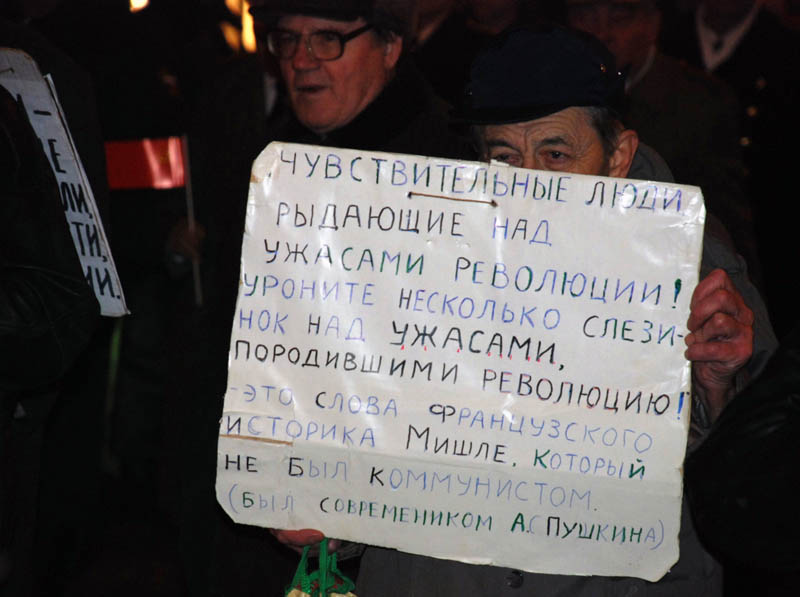 ЧУВСТВИТЕЛЬНЫЕ ЛЮДИ,
РЫДАЮЩИЕ НАД
УЖАСАМИ РЕВОЛЮЦИИ!
УРОНИТЕ НЕСКОЛЬКО СЛЕЗИ-
НОК НАД УЖАСАМИ,
ПОРОДИВШИМИ РЕВОЛЮЦИЮ!
-ЭТО СЛОВА ФРАНЦУЗСКОГО
ИСТОРИКА МИШЛЕ, КОТОРЫЙ
НЕ БЫЛ КОММУНИСТОМ.
(БЫЛ СОВРЕМЕНИКОМ А.С ПУШКИНА)